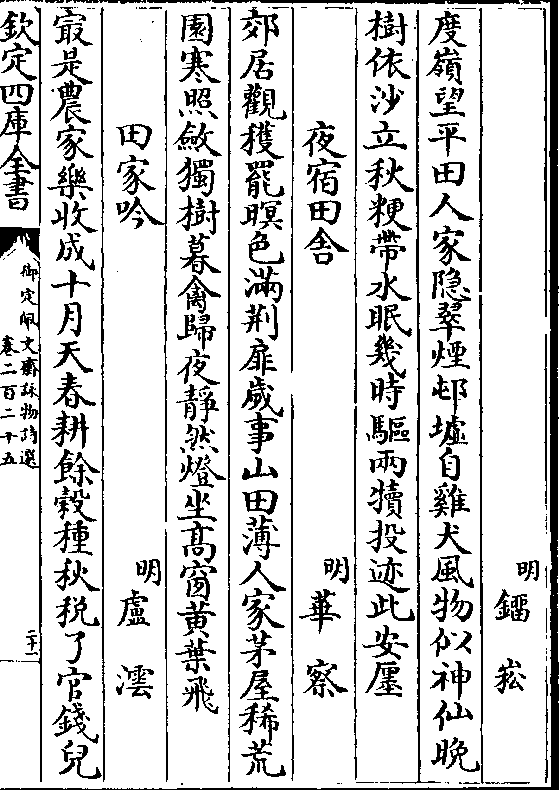 明 鐂崧
度嶺望平田人家隱翠煙邨墟自雞犬風物似神仙晚
樹依沙立秋粳帶水眠幾時驅兩犢投迹此安廛
夜宿田舍 明 華察
郊居觀穫罷暝色滿荆扉歲事山田薄人家茅屋稀荒
園寒照斂獨樹暮禽歸夜靜然燈坐高窗黃葉飛
田家吟 明 盧澐
冣是農家樂收成十月天春耕餘穀種秋稅了官錢兒
欽定四庫全書
御定佩文齋詠物詩選
卷二百二十五